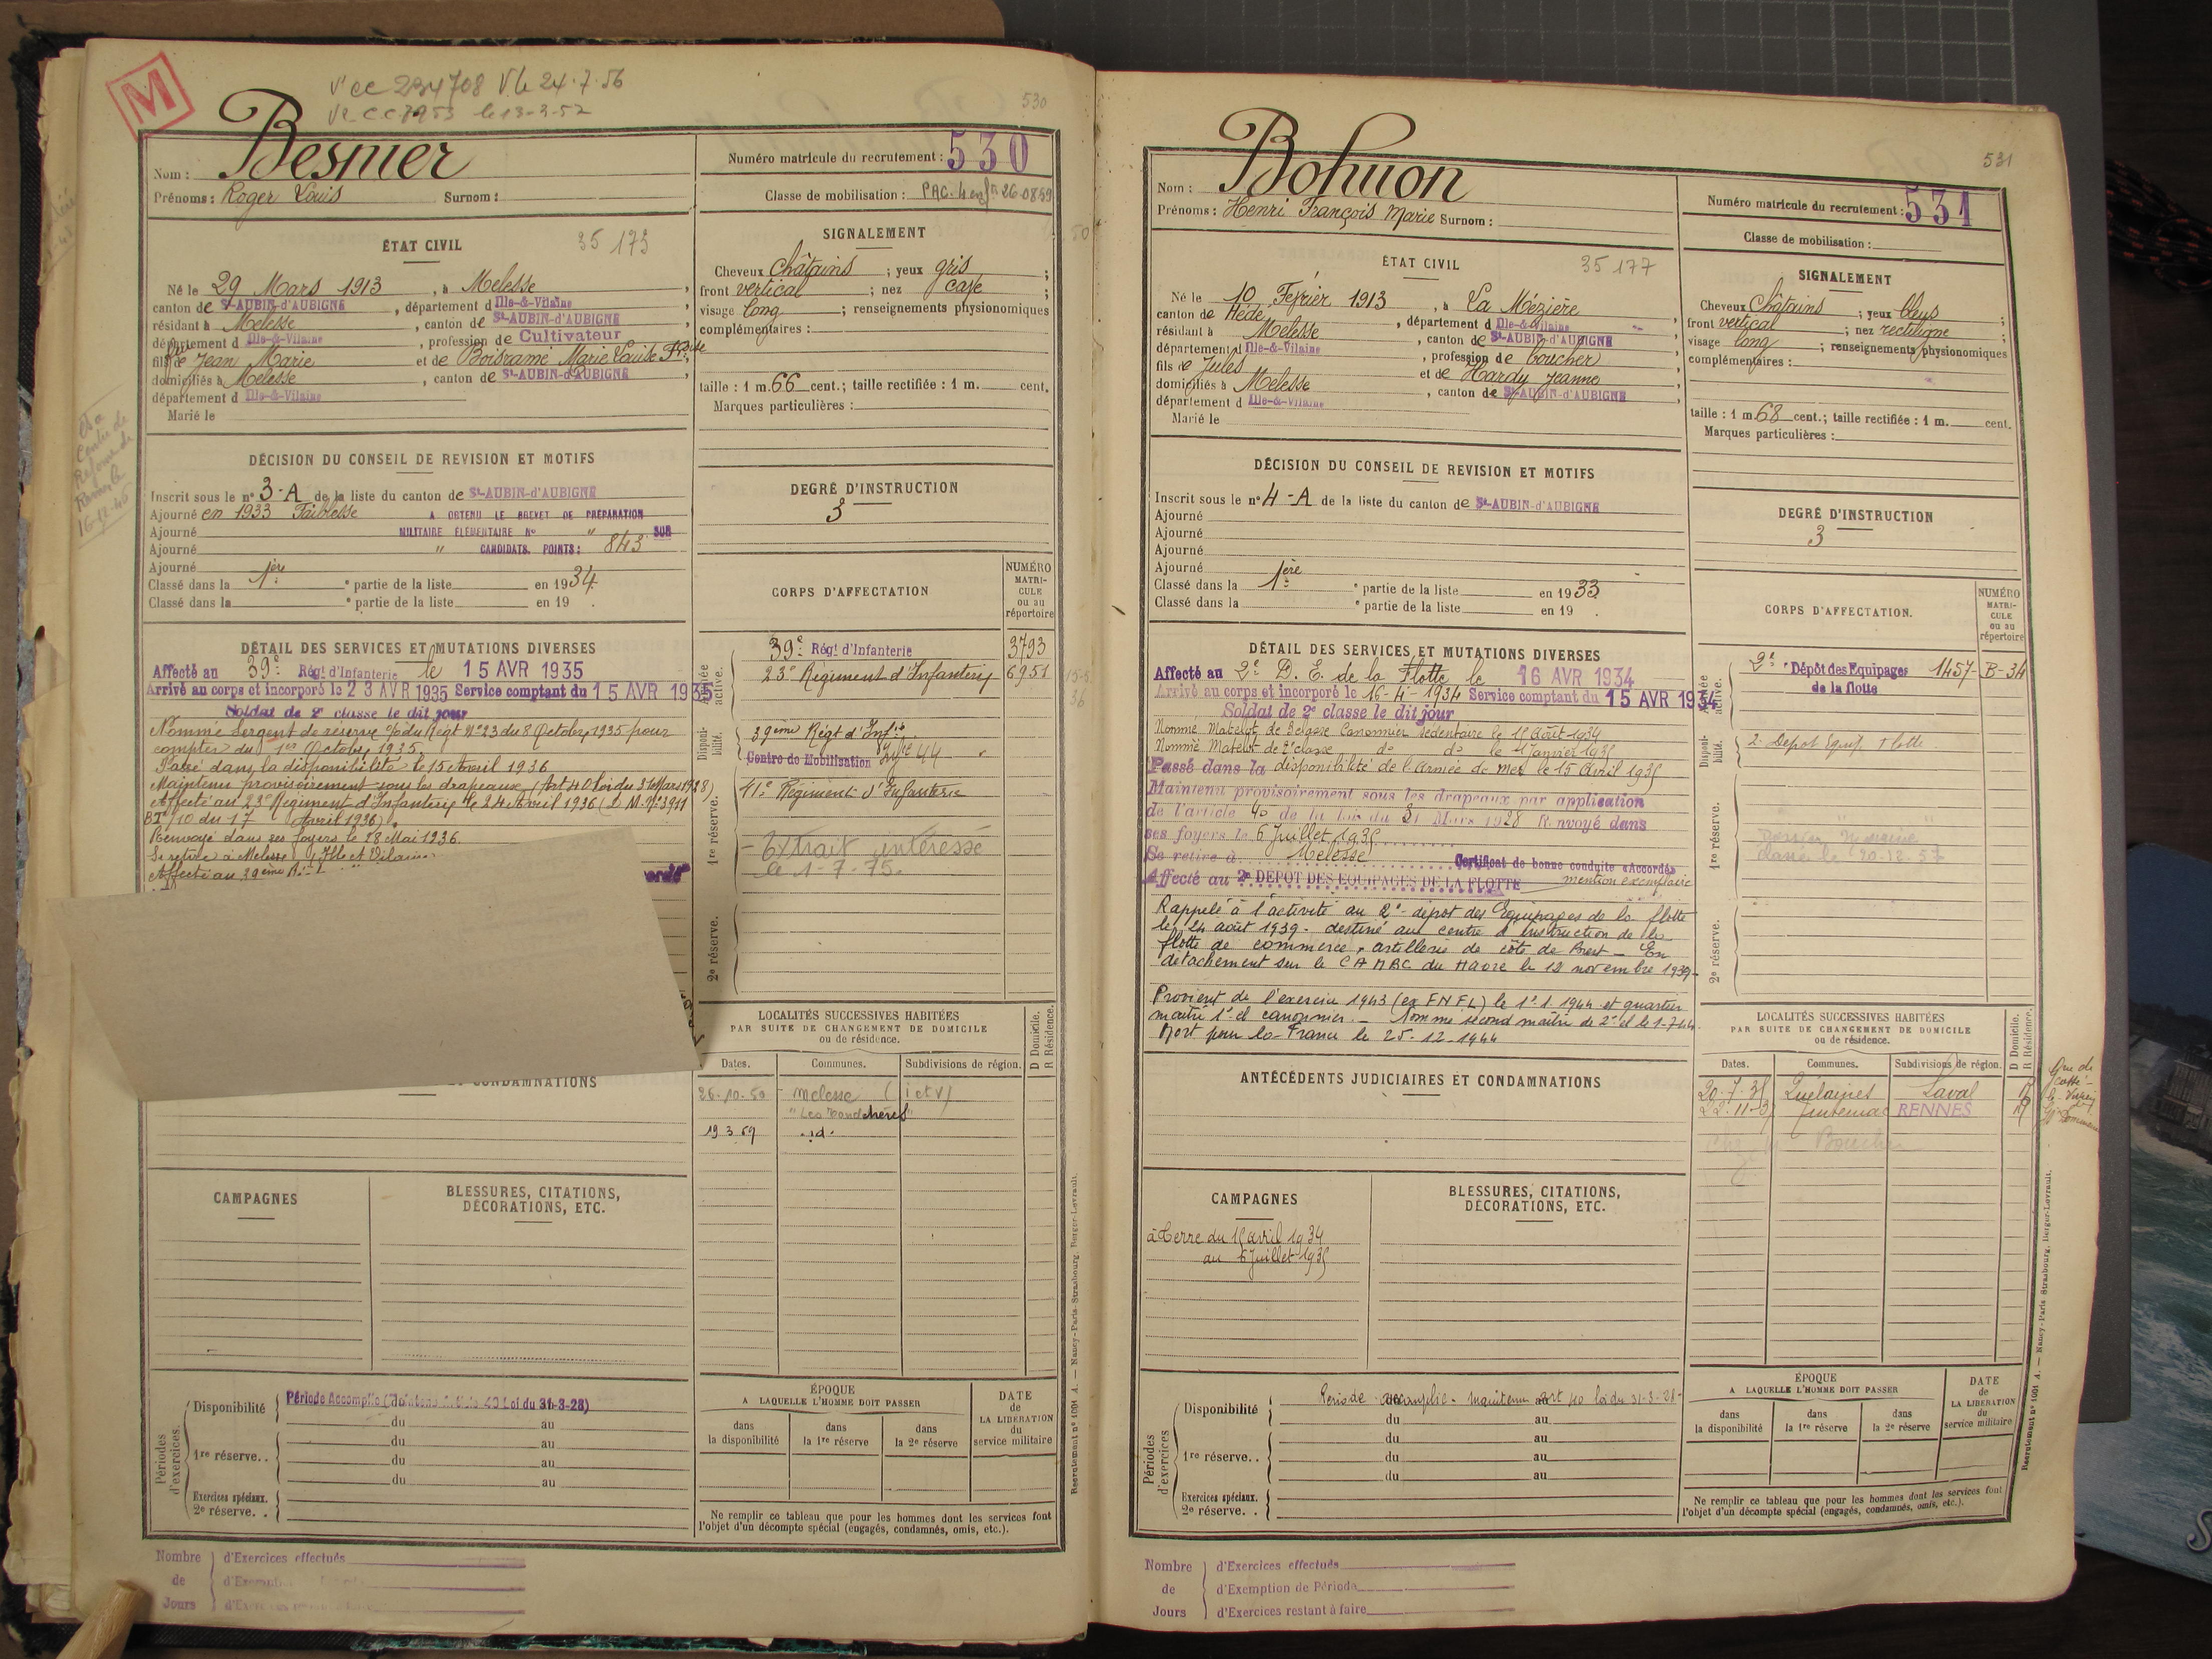 M
V° CC 234708 V. le 24.7.56
le 13-3-57
530
Nom : Besnier
Prénoms : Roger Louis Surnom :
Numéro matricule du recrutement : 530
Classe de mobilisation :
ÉTAT CIVIL
35 173
Né le 29 Mars 1913, à Melesse,
canton de St-AUBIN-d'AUBIGNÉ, département d Ille-&-Vilaine
résidant à Melesse, canton de St-AUBIN-d'AUBIGNÉ,
département d Ille-&-Vilaine, profession de Cultivateur
fils de Jean Marie et de Boisramé Marie Louise
domiciliés à Melesse, canton de St-AUBIN-d'AUBIGNÉ,
département d Ille-&-Vilaine
Marié le
SIGNALEMENT
Cheveux châtains ; yeux gris ;
front vertical ; nez cave ;
visage long ; renseignements physionomiques
complémentaires :
taille : 1 m. 66 cent. ; taille rectifiée : 1 m. cent.
Marques particulières :
DÉCISION DU CONSEIL DE REVISION ET MOTIFS
Inscrit sous le n° 3-A de la liste du canton de St-AUBIN-d'AUBIGNÉ
Ajourné en 1933 Faiblesse A OBTENU LE BREVET DE PRÉPARATION
Ajourné MILITAIRE ÉLÉMENTAIRE No " SUR
Ajourné " CANDIDATS. POINTS : 843
Ajourné
Classé dans la 1ère ° partie de la liste en 1934
Classé dans la ° partie de la liste en 19 .
DEGRÉ D'INSTRUCTION
3
CORPS D'AFFECTATION
NUMÉRO MATRICULE ou au répertoire
Armée active.
39e Régt d'Infanterie 3793
23e Régiment d'Infanterie 6951
Disponibilité.
39ème Régt d'Infie
Centre de Mobilisation Infie 44
1re réserve.
41e Régiment d'Infanterie
Extrait intéressé
le 1-7-75.
2e réserve.
DÉTAIL DES SERVICES ET MUTATIONS DIVERSES
Affecté au 39e Régt d'Infanterie le 15 AVR 1935
Arrivé au corps et incorporé le 23 AVR 1935 Service comptant du 15 AVR 1935
Soldat de 2e classe le dit jour
Nommé Sergent de réserve du Régt N°23 du 8 Octobre 1935 pour
compter du 1er Octobre 1935.
Passé dans la disponibilité le 15 Avril 1936
Maintenu provisoirement sous les drapeaux (Art 40 loi du 31 Mars 1928)
Affecté au 23e Régiment d'Infanterie le 24 Avril 1936 (D. M. N° 3911
BT/10 du 17 Avril 1936).
Renvoyé dans ses foyers le 28 Mai 1936.
Se retire à Melesse Ille et Vilaine
Affecté au 39ème R.I.
CONDAMNATIONS
LOCALITÉS SUCCESSIVES HABITÉES
PAR SUITE DE CHANGEMENT DE DOMICILE
ou de résidence.
D Domicile. R Résidence.
Dates. Communes. Subdivisions de région.
26-10-50 Melesse (I et V)
19 3 69 .id.
CAMPAGNES
BLESSURES, CITATIONS,
DÉCORATIONS, ETC.
Périodes d'exercices.
Disponibilité Période Accomplie (Maintenu Article 40 Loi du 31-3-28)
du au
1re réserve. .
du au
du au
du au
Exercices spéciaux.
2e réserve. .
ÉPOQUE
A LAQUELLE L'HOMME DOIT PASSER
dans la disponibilité
dans la 1re réserve
dans la 2e réserve
DATE de LA LIBÉRATION du service militaire
Ne remplir ce tableau que pour les hommes dont les services font
l'objet d'un décompte spécial (engagés, condamnés, omis, etc.).
Recrutement n° 1001 A. — Nancy-Paris-Strasbourg, Berger-Levrault.
Nombre de Jours
d'Exercices effectués
531
Nom : Bohuon
Prénoms : Henri François Marie Surnom :
Numéro matricule du recrutement : 531
Classe de mobilisation :
ÉTAT CIVIL
35 177
Né le 10 Février 1913, à La Mézière,
canton de Hédé, département d Ille-&-Vilaine
résidant à Melesse, canton de St-AUBIN-d'AUBIGNÉ,
département d Ille-&-Vilaine, profession de boucher
fils de Jules et de Hardy Jeanne
domiciliés à Melesse, canton de St-AUBIN-d'AUBIGNÉ,
département d Ille-&-Vilaine
Marié le
SIGNALEMENT
Cheveux Châtains ; yeux bleus ;
front vertical ; nez rectiligne ;
visage long ; renseignements physionomiques
complémentaires :
taille : 1 m. 68 cent. ; taille rectifiée : 1 m. cent.
Marques particulières :
DÉCISION DU CONSEIL DE REVISION ET MOTIFS
Inscrit sous le n° 4-A de la liste du canton de St-AUBIN-d'AUBIGNÉ
Ajourné
Ajourné
Ajourné
Ajourné
Classé dans la 1ère ° partie de la liste en 1933
Classé dans la ° partie de la liste en 19 .
DEGRÉ D'INSTRUCTION
3
CORPS D'AFFECTATION.
NUMÉRO MATRICULE ou au répertoire
Armée active.
2e Dépôt des Equipages 1457-B-34
de la flotte
Disponibilité.
2e Dépôt Equip. Flotte
1re réserve.
2e réserve.
DÉTAIL DES SERVICES ET MUTATIONS DIVERSES
Affecté au 2e D. E. de la Flotte le 16 AVR 1934
Arrivé au corps et incorporé le 16-4-1934 Service comptant du 15 AVR 1934
Soldat de 2e classe le dit jour
Nommé Matelot de 3e classe Canonnier sédentaire le 1er Août 1934
Nommé Matelot de 2e classe do do le 1 Janvier 1935
Passé dans la disponibilité de l'Armée de mer le 15 Avril 1935
Maintenu provisoirement sous les drapeaux par application
de l'article 40 de la loi du 31 Mars 1928 Renvoyé dans
ses foyers le 6 Juillet 1935
Se retire à Melesse Certificat de bonne conduite «Accordé»
Affecté au 2e DEPOT DES EQUIPAGES DE LA FLOTTE mention exemplaire
Rappelé à l'activité au 2e dépôt des Equipages de la flotte
le 24 août 1939 - destiné au centre d'instruction de la
flotte de commerce, artillerie de côte de Brest — En
détachement sur le CAMBC du Havre le 12 novembre 1939-
Provient de l'exercice 1943 (ex FNFL) le 1.1.1944 et quartier
maître 1e cl canonnier. — Nommé second maître de 2e cl le 1-7-44
Mort pour la France le 25-12-1944
ANTÉCÉDENTS JUDICIAIRES ET CONDAMNATIONS
LOCALITÉS SUCCESSIVES HABITÉES
PAR SUITE DE CHANGEMENT DE DOMICILE
ou de résidence.
D Domicile. R Résidence.
Dates. Communes. Subdivisions de région.
20-7-35 Quelaines Laval
Tinténiac RENNES
Boucher
CAMPAGNES
à terre du 15 avril 1934
au 6 Juillet 1935
BLESSURES, CITATIONS,
DÉCORATIONS, ETC.
Périodes d'exercices
Disponibilité Période accomplie - maintenu art 40 loi du 31-3-28-
du au
1re réserve. .
du au
du au
du au
Exercices spéciaux.
2e réserve. .
ÉPOQUE
A LAQUELLE L'HOMME DOIT PASSER
dans la disponibilité
dans la 1re réserve
dans la 2e réserve
DATE de LA LIBÉRATION du service militaire
Ne remplir ce tableau que pour les hommes dont les services font
l'objet d'un décompte spécial (engagés, condamnés, omis, etc.).
Recrutement n° 1001 A. — Nancy-Paris-Strasbourg, Berger-Levrault.
Nombre de Jours
d'Exercices effectués
d'Exemption de Période
d'Exercices restant à faire